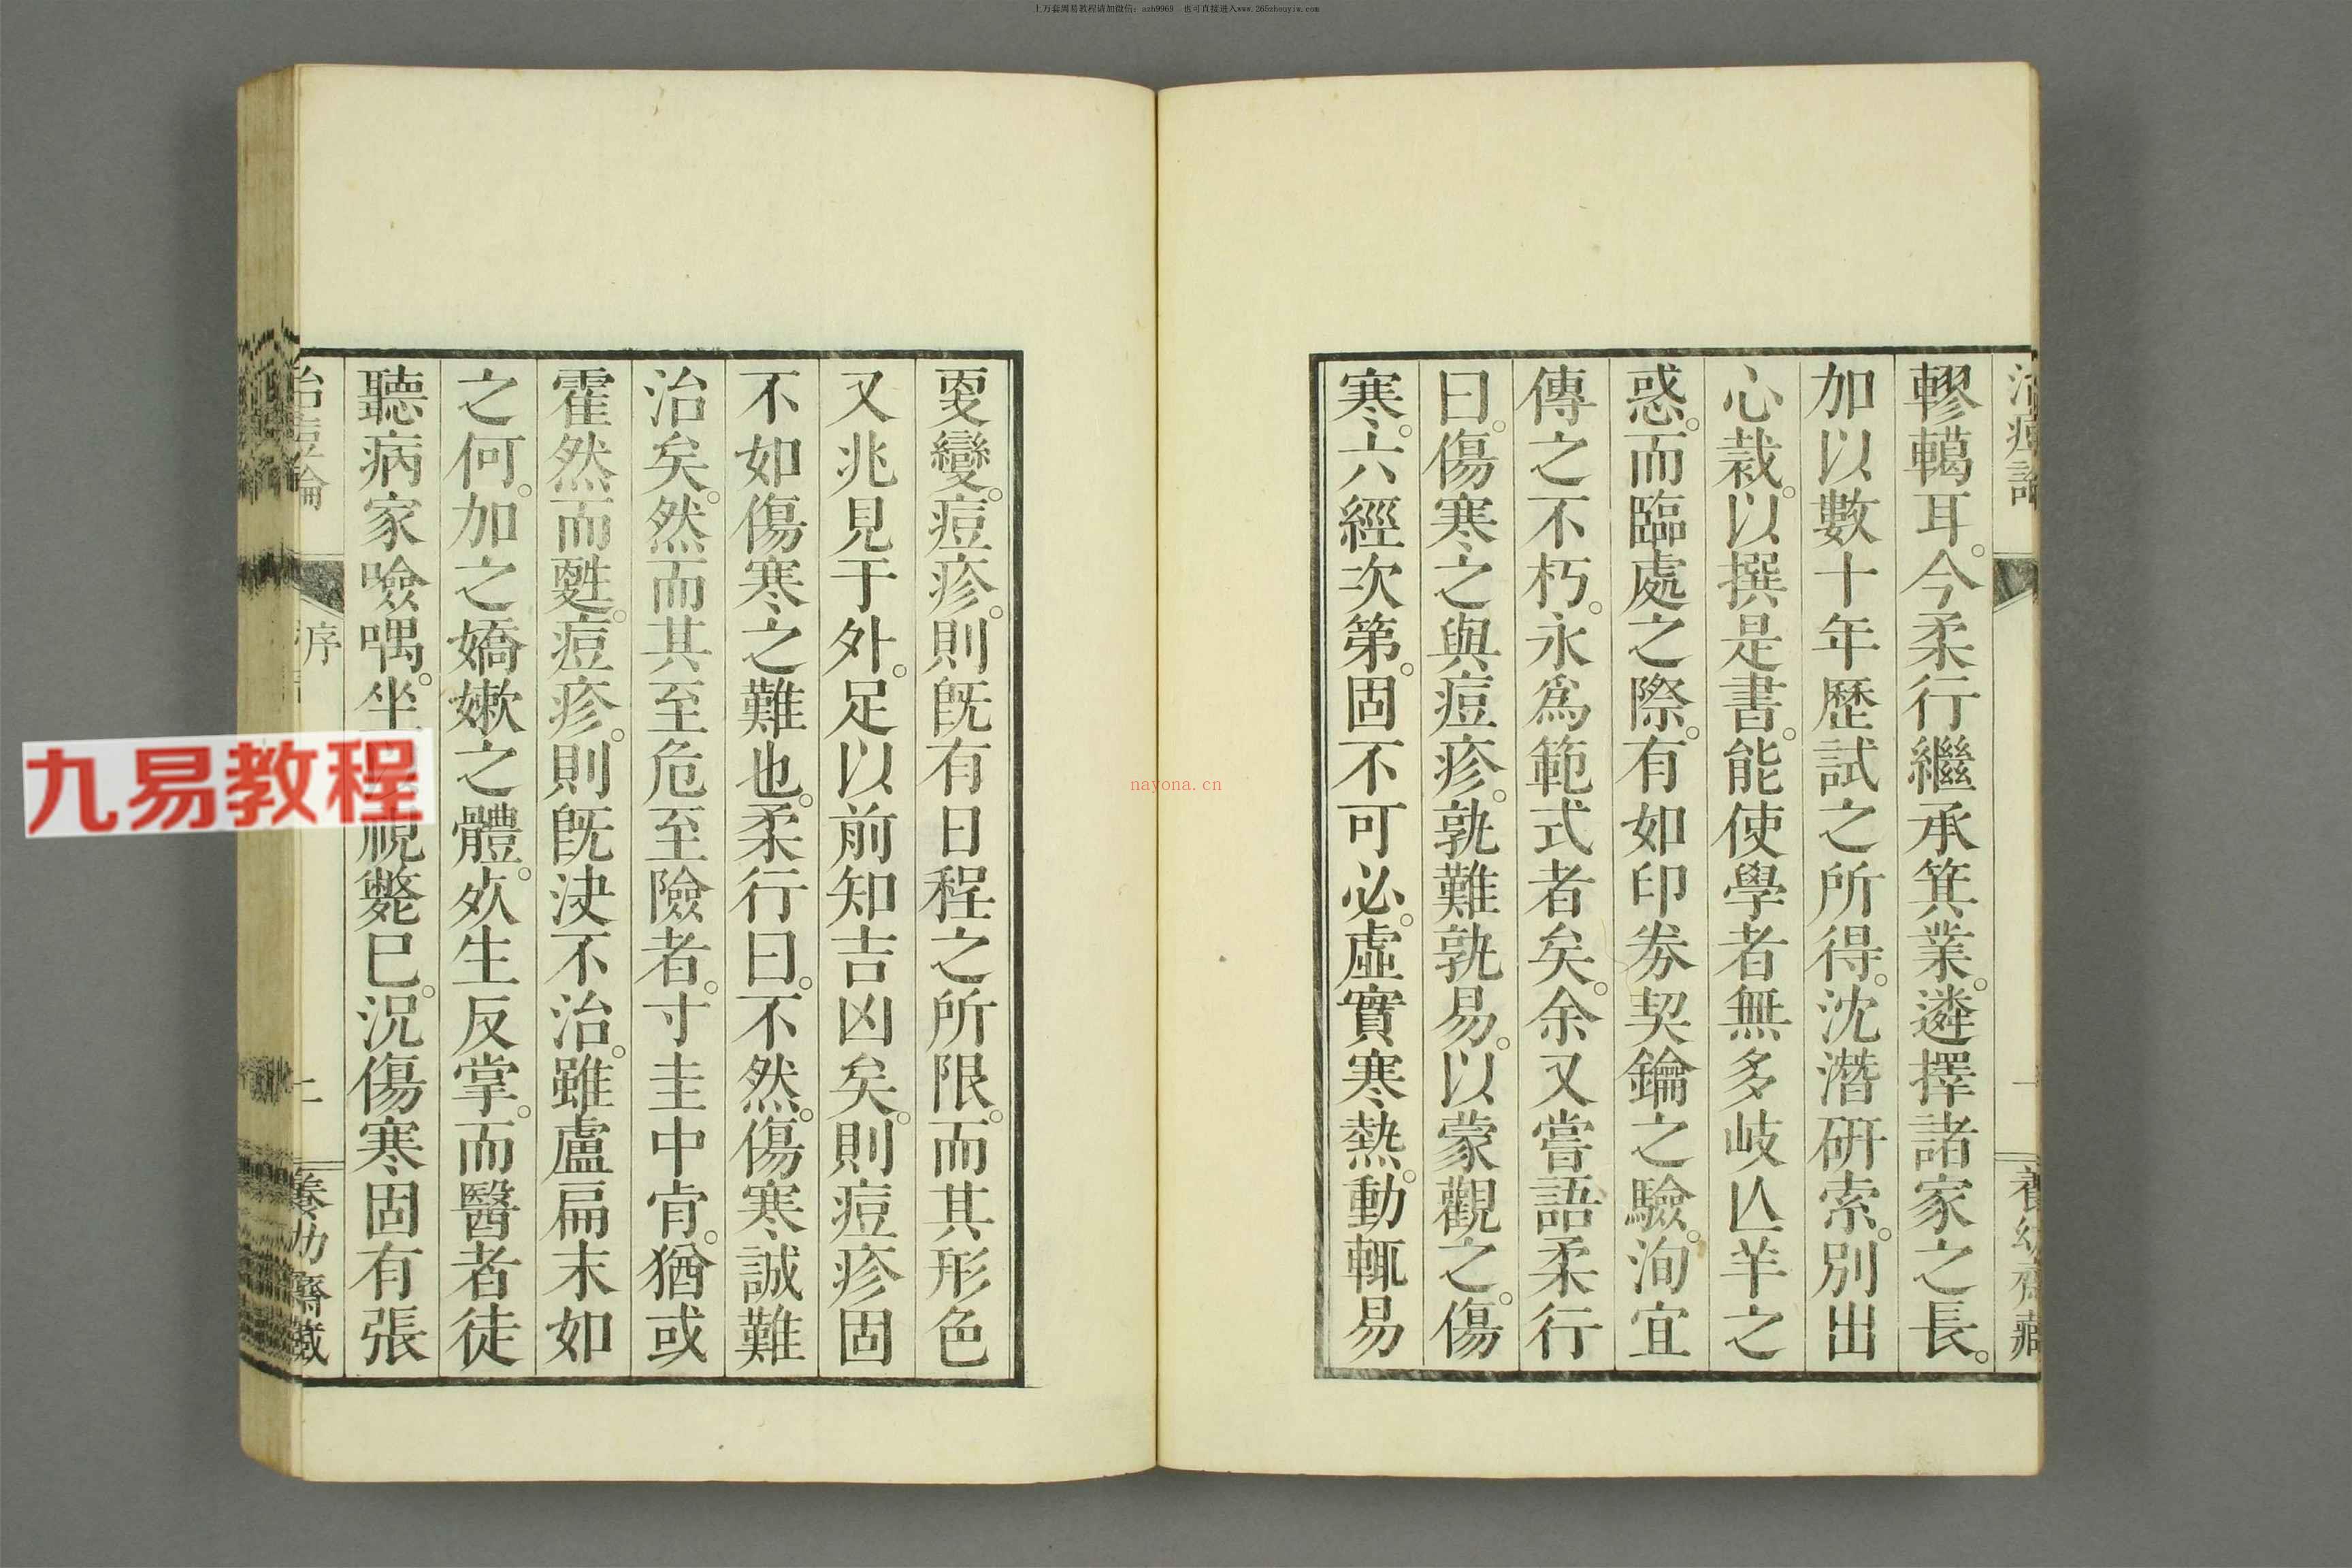 上万套周易教程请加微信：azh9969 也可直接进入www.265zhouyiw.com
轇轕耳。今柔行繼承箕業。遴擇諸家之長。
加以數十年歷試之所得。沈潛研索。別出
心裁。以撰是書。能使學者無多岐亾羊之
惑。而臨處之際。有如印劵契鑰之驗。洵宜
傳之不朽。永爲範式者矣。余又嘗語柔行
曰。傷寒之與痘疹。孰難孰易。以蒙觀之。傷
寒。六經次第。固不可必。虛實寒熱。動輒易
叓變。痘疹。則旣有日程之所限。而其形色
又兆見于外。足以前知吉凶矣。則痘疹固
不如傷寒之難也。柔行曰。不然。傷寒誠難
治矣。然而其至危至險者。寸圭中肯。猶或
霍然而甦。痘疹。則旣決不治。雖盧扁末如
之何。加之嬌嫩之體。㱙生反掌。而醫者徒
聽病家噞喁。坐視斃已。況傷寒固有張
治痘論
序
二
養幼齋藏
九易教程
nayona.cn